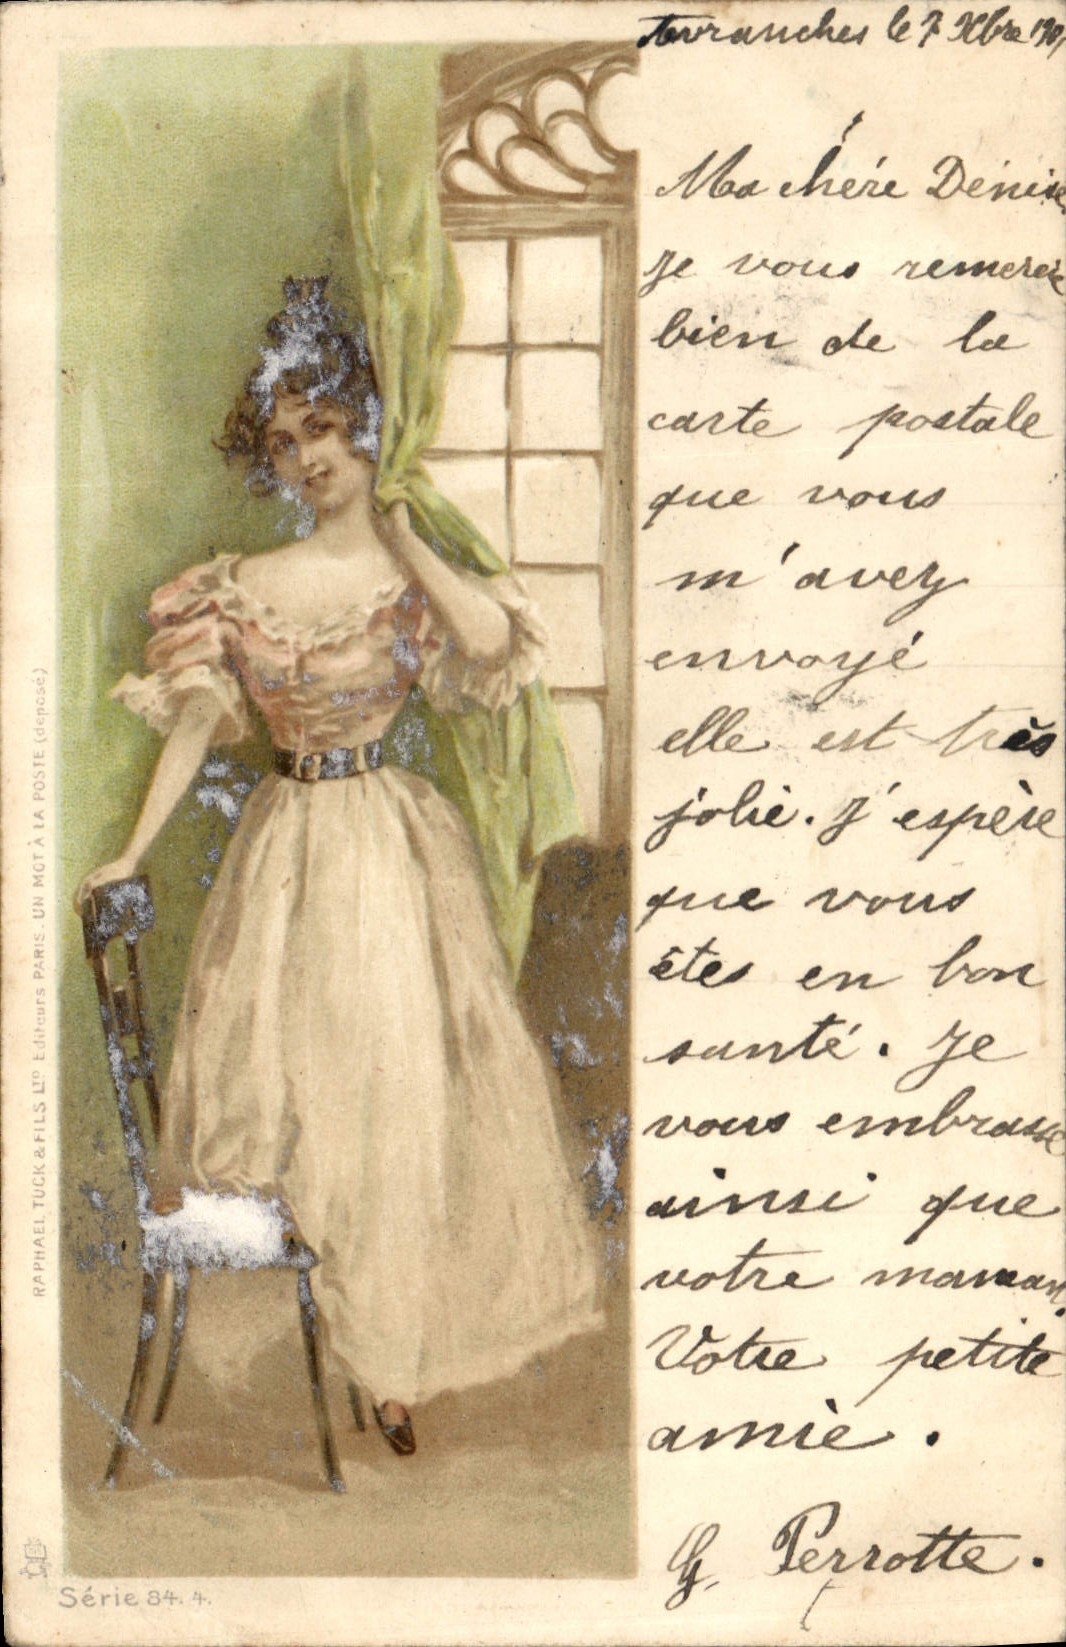 Avranches le 7 Xbre 190
Ma chére Dénise
je vous remercie
bien de la
carte postale
que vous
m'avez
envoyé
elle est très
jolie. J'espère
que vous
êtes en bon
santé. Je
vous embrasse
ainsi que
votre maman.
Votre petite
amie.
G. Perrotte.
RAPHAEL TUCK & FILS LTD Editeurs PARIS. UN MOT À LA POSTE (deposé)
Série 84. 4.